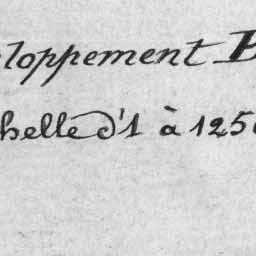 loppement B
helle d'1 à 1250